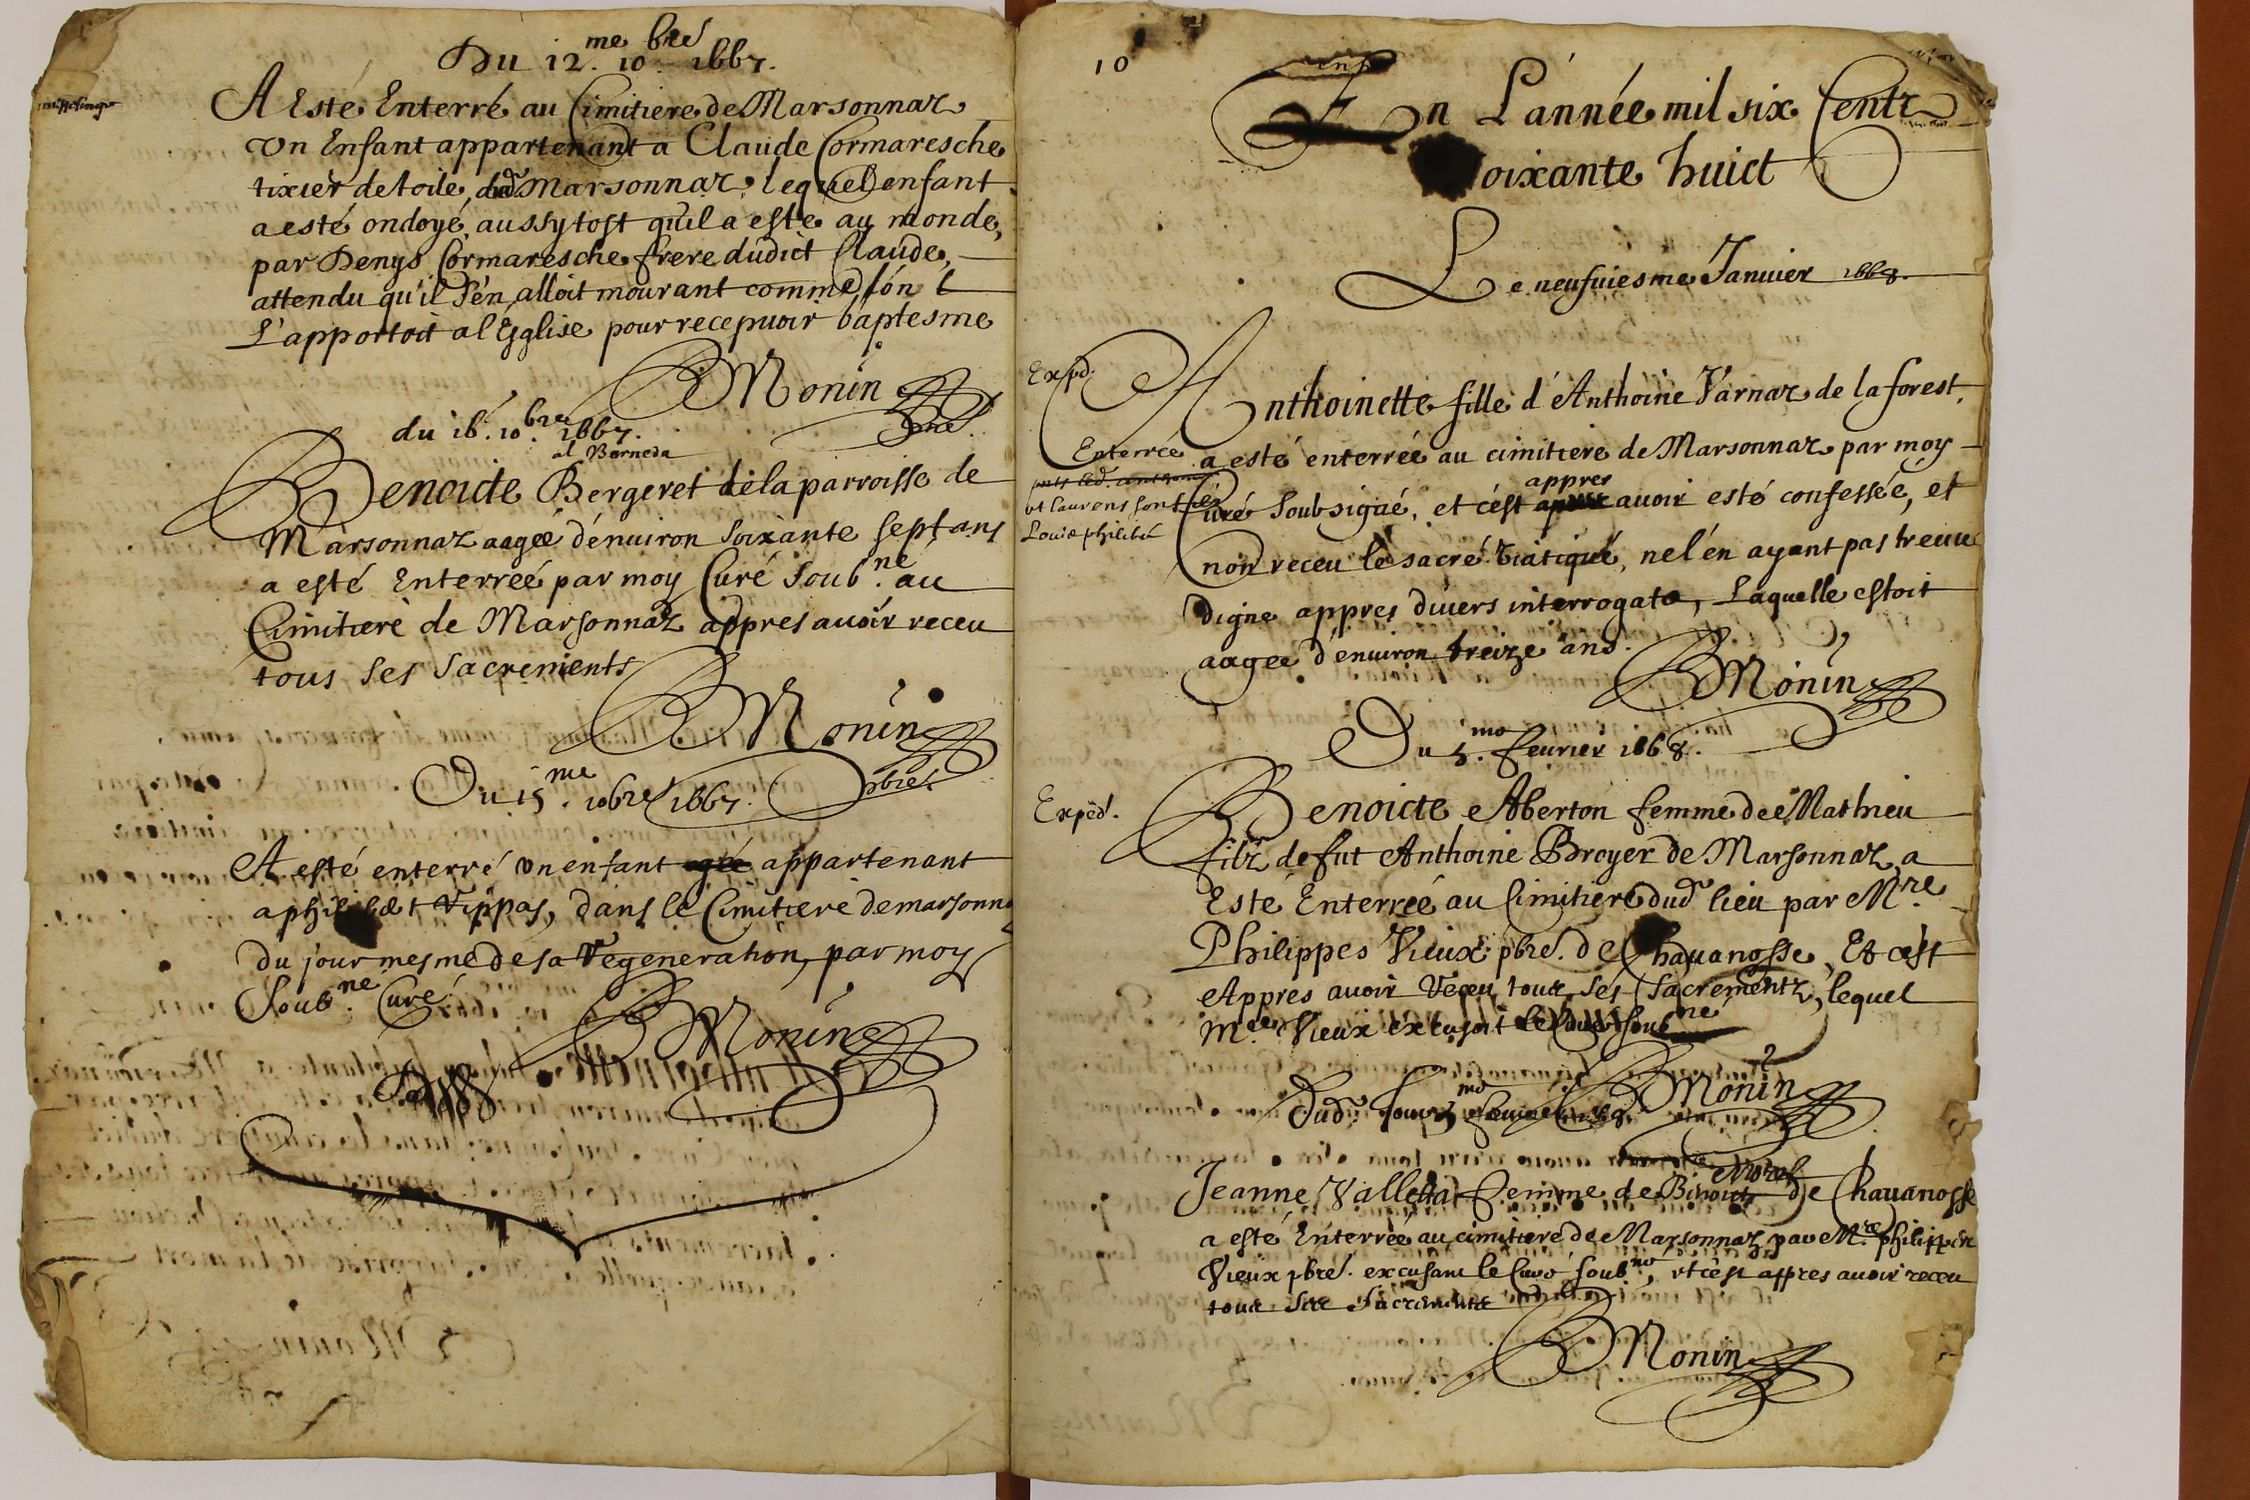 Du 12.me 10.bre 1667.
A Esté Enterré au Cimitiere de Marsonnaz
Un Enfant appartenant a Claude Cormaresche
tixier de toile, dud. Marsonnaz, lequel enfant
a esté ondoyé, aussytost qu'il a esté au monde,
par Denys Cormaresche frere dudict Claude,
attendu qu'il s'en alloit mourant comme l'on l
L'apportoit a l'Eglise pour recepuoir baptesme
B Monin
du 16. 10.bre 1667.
al Borneda
Benoicte Bergeret de la parroisse de
Marsonnaz aagée d'enuiron soixante sept ans
a esté Enterrée par moy Curé soub.né au
Cimitiere de Marsonnaz appres auoir receu
tous ses sacrements
B Monin
pbre.
Du 15.me 10bre 1667.
A esté enterré un enfant appartenant
a philibet Vippas, dans le Cimitiere de marsonn
du jour mesme de sa regeneration, par moy
Soub.né Curé.
B Monin
10
En L'année mil six Centz
soixante huict
Le neufuiesme Januier 1668.
Exped.
Anthoinette fille d'Anthoine Varnaz de la forest,
Enterrée
a esté enterrée au cimitiere de Marsonnaz par moy
et laurens
Louis philibt
Curé soubsigné, et c'est appres auoir esté confessée, et
non receu le sacré Viatique, ne l'en ayant pas treuue
digne appres diuers interrogats, Laquelle estoit
aagée d'enuiron treize ans.
B Monin
Du 5.me feurier 1668.
Exped.
Benoicte Aberton femme de Mathieu
filz de fut Anthoine Broyer de Marsonnaz a
Esté Enterrée au Cimitiere dud. lieu par M.re
Philippes Vieux pbre. de Chauanosse, Et c'est
Appres auoir receu tous ses sacrementz, lequel
M.re Vieux excusoit le Curé soub.né
B Monin
Dud. Jour 5.me feurier 1668.
Morel
Jeanne Valletta femme de Benoict de Chauanosse
a esté Enterrée au cimitiere de Marsonnaz par M.re philippes
Vieux pbre. excusant le Curé soub.né, et c'est appres auoir receu
tous ses sacrements
B Monin